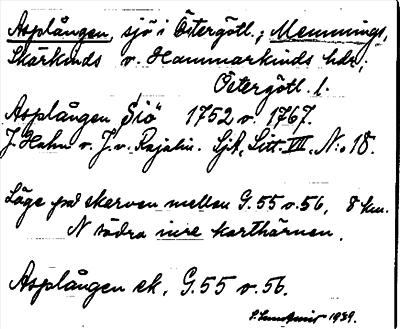 Asplången, sjö i Östergötl.; Memmings,
Skärkinds o. Hammarkinds hdr;
Östergötl. l.
Asplången Siö 1752 o. 1767.
J. Hahn o. J. v. Rajalin. SjA, Litt. VII, N:o 18.
Läge på skarven mellan G.55 o. 56, 8 km.
N södra inre karthörnen.
Asplången ek. G.55 o. 56.
1939.